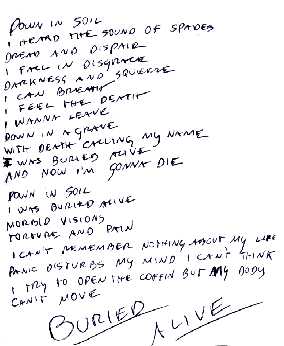 DOWN IN SOIL
I HEARD THE SOUND OF SPADES
DREAD AND DISPAIR
I FALL IN DISGRACE
DARKNESS AND SQUEEZE
I CAN BREATH
I FEEL THE DEATH
I WANNA LEAVE
DOWN IN A GRAVE
WITH DEATH CALLING MY NAME
I WAS BURIED ALIVE
AND NOW I'M GONNA DIE
DOWN IN SOIL
I WAS BURIED ALIVE
MORBID VISIONS
TORTURE AND PAIN
I CAN'T REMEMBER NOTHING ABOUT MY LIFE
PANIC DISTURBS MY MIND I CAN'T THINK
I TRY TO OPEN THE COFFIN BUT MY BODY
CAN'T MOVE
BURIED ALIVE